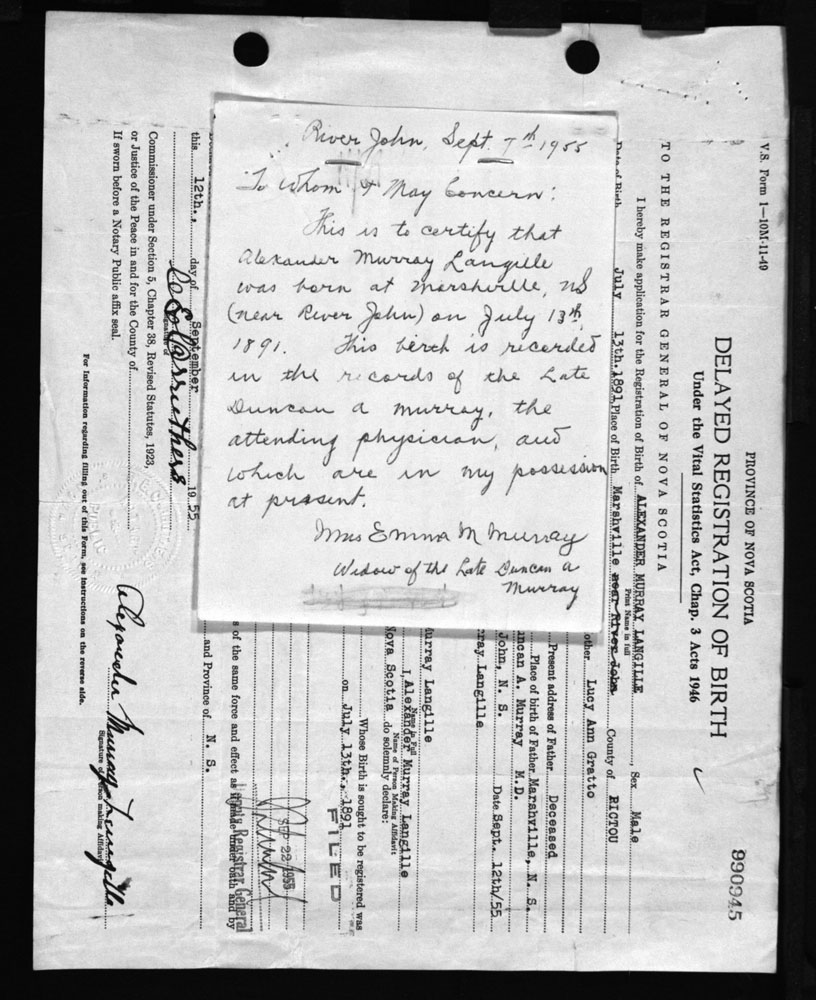 River John, Sept. 7th 1955
To Whom It May Concern:
This is to certify that
Alexander Murray Langille
was born at Marshville, NS
(near River John) on July 13th,
1891. This berth is recorded
in the records of the Late
Duncan A Murray, the
attending physician, and
which are in my possession
at present.
Mrs Emma M Murray
Widow of the Late Duncan A
Murray
V.S. Form 1—10M-11-49
PROVINCE OF NOVA SCOTIA
DELAYED REGISTRATION OF BIRTH
Under the Vital Statistics Act, Chap. 3 Acts 1946
990945
TO THE REGISTRAR GENERAL OF NOVA SCOTIA
I hereby make application for the Registration of Birth of ALEXANDER MURRAY LANGILLE, Sex Male
Print Name in full
Date of Birth July 13th. 1891 Place of Birth Marshville near River John County of PICTOU
other Lucy Ann Gratto
Present address of Father Deceased
Place of birth of Father Marshville, N. S.
ncan A. Murray M.D.
John, N. S. Date Sept. 12th/55
rray Langille
urray Langille
I, Alexander Murray Langille
Name in Full
Name of Person Making Affidavit
Nova Scotia do solemnly declare:
Whose Birth is sought to be registered was
on July 13th., 1891
FILED
SEP 22 1955
s of the same force and effect as if made under oath and by
Deputy Registrar General
this 12th., day of September 1955
and Province of N. S.
Signature of
Commissioner under Section 5, Chapter 38, Revised Statutes, 1923,
or Justice of the Peace in and for the County of
If sworn before a Notary Public affix seal.
Alexander Murray Langille
Signature of Person making Affidavit
For Information regarding filling out of this Form, see instructions on the reverse side.